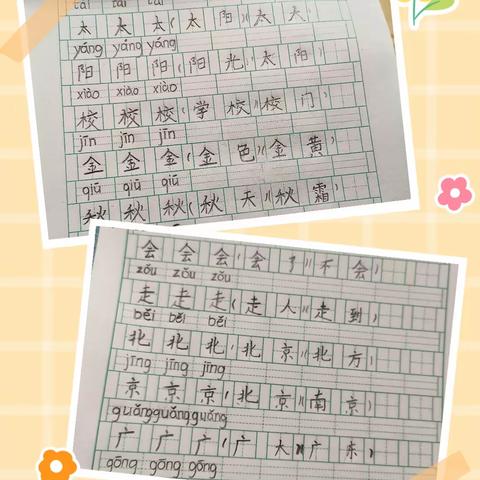 tài tài tài
太 太 太(太 阳)(太
yáng yáng yáng
阳 阳 阳(阳 光)(太 阳)
xiào xiào xiào
校 校 校(学 校)(校 门)
jīn jīn jīn
金 金 金(金 色)(金 黄)
qiū qiū qiū
秋 秋 秋(秋 天)(秋 霜)
会 会 会(会 了)(不 会)
zǒu zǒu zǒu
走 走 走(走 人)(走 到)
běi běi běi
北 北 北(北 京)(北 方)
jīng jīng jīng
京 京 京(北 京)(南 京)
guǎng guǎng guǎng
广 广 广(广 大)(广 东)
gōng gōng gōng